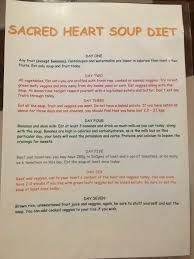 SACRED HEART SOUP DIET
DAY ONE
Any fruit (except bananas). Cantaloupes and watermelons are lower in calories than most
fruits. Eat only soup and fruit today.
DAY TWO
All vegetables. Eat until you are stuffed with fresh raw, cooked or canned veggies. Try to eat
green leafy veggies and stay away from dry beans, peas or corn. Eat veggies along with the
soup. At dinnertime reward yourself with a big baked potato and butter. Don't eat any
fruits through today.
DAY THREE
Eat all the soup, fruit and veggies you want. Do not have a baked potato. If you have eaten as
above for three days and not cheated, you should find that you have lost
DAY FOUR
Bananas and skim milk. Eat at least 3 bananas and drink as much milk as you can today, along
with the soup. Bananas are high in calories and carbohydrates, as is the milk but on this
particular day, your body will need the potassium and carbs, proteins and calcium to lessen the
cravings for sweets.
DAY FIVE
Beef and tomatoes. You may have
DAY SIX
Beef and veggies. Eat to your heart's content of the beef and veggies today. You can even
have 2-3 steaks if you like with green leafy veggies but no baked potato. Be sure to eat
soup at least once today.
DAY SEVEN
Brown rice, unsweetened fruit juice and veggies. again, be sure to stuff yourself and eat the
soup. You can add cooked veggies to your rice if you wish.